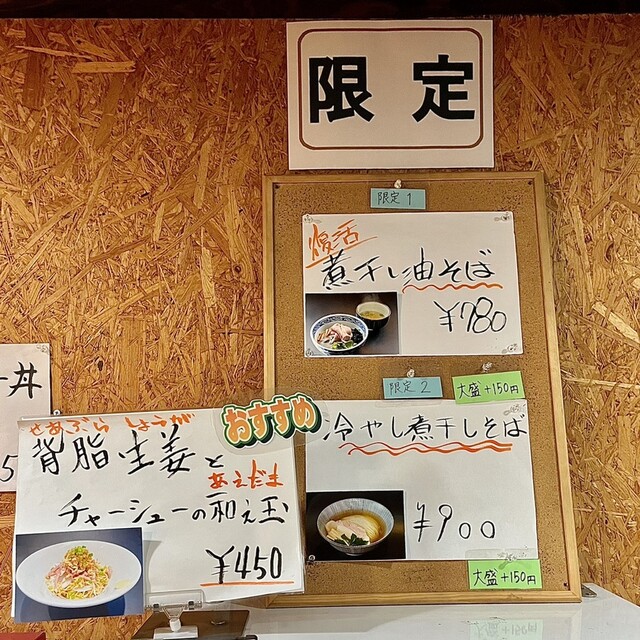 限定
限定1
復活
煮干し油そば
¥780
限定2
大盛+150円
冷やし煮干しそば
¥900
大盛+150円
丼
5
おすすめ
せあぶら しょうが
背脂生姜と
あえだま
チャーシューの和え玉
¥450